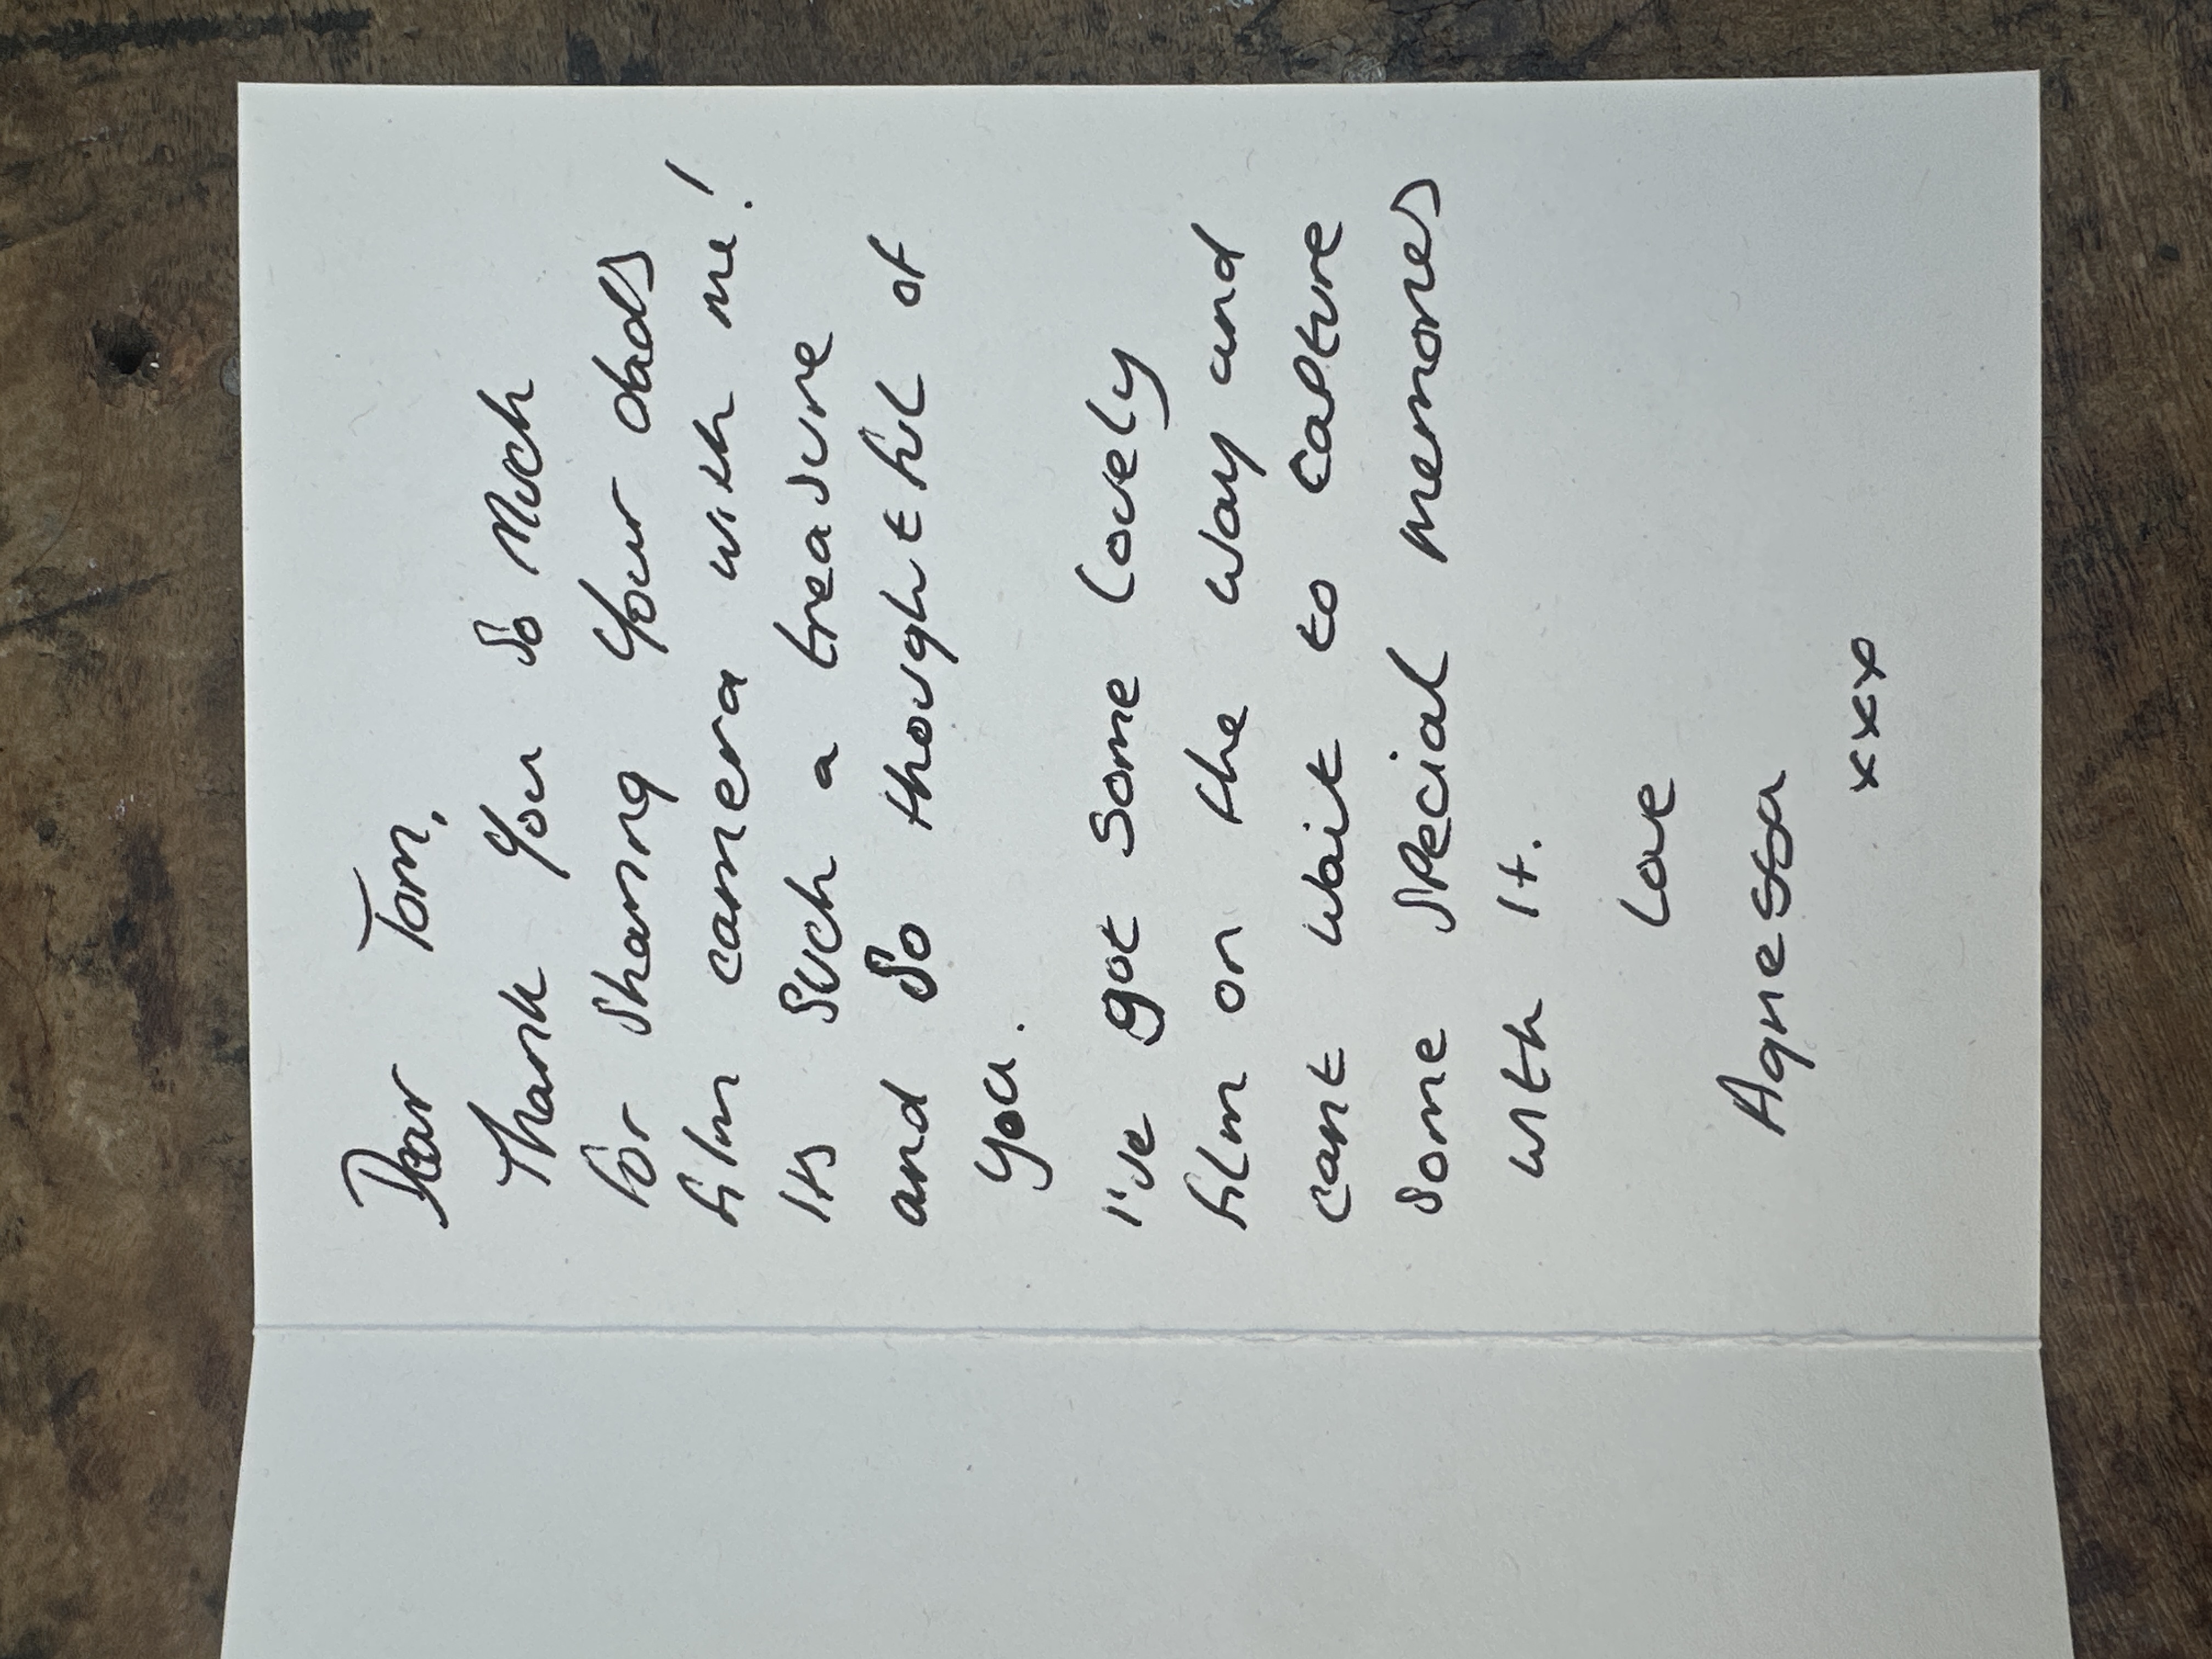 Dear Tom,
Thank You So Much
for sharing Your dads
film camera with me!
Its such a treasure
and so thoughtful of
you.
I've got some lovely
film on the way and
cant wait to capture
some special memories
with it.
Love
Agnessa
xxx